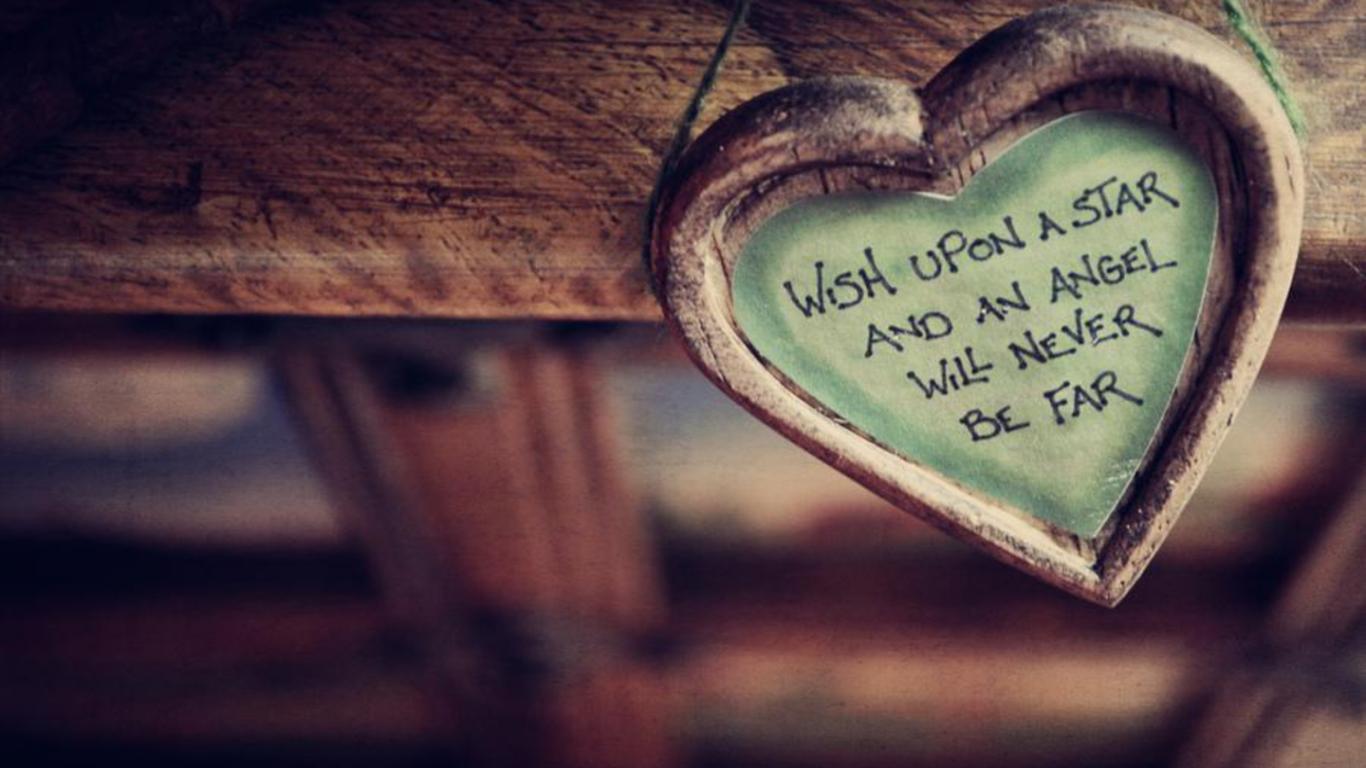 WiSH UPON A STAR
AND AN ANGEL
WiLL NEVER
BE FAR